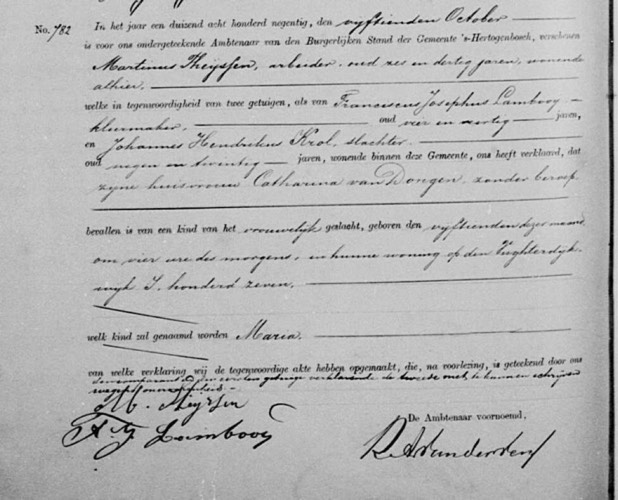 No. 782
In het jaar een duizend acht honderd negentig, den vyftienden October
is voor ons ondergeteekende Ambtenaar van den Burgerlijken Stand der Gemeente 's-Hertogenbosch, verschenen
Martinus Theyssen, arbeider, oud zes en dertig jaren, wonende
alhier,
welke in tegenwoordigheid van twee getuigen, als van Franciscus Josephus Lambooy
kleermaker, oud vier en veertig jaren,
en Johannes Hendrikus Krol, slachter.
oud negen en twintig jaren, wonende binnen deze Gemeente, ons heeft verklaard, dat
zyne huisvrouw Catharina van Dongen, zonder beroep
bevallen is van een kind van het vrouwelijk geslacht, geboren den vyftienden dezer maand
om vier ure des morgens, in hunne woning op den Vughterdyk,
wyk I. honderd zeven.
welk kind zal genaamd worden Maria.
van welke verklaring wij de tegenwoordige akte hebben opgemaakt, die, na voorlezing, is geteekend door ons
den comparant en den eersten getuige verklarende de tweede niet te kunnen schryven
M. Theyssen
F. J. Lambooy
De Ambtenaar voornoemd,